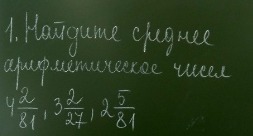 1. Найдите среднее
арифметическое чисел
4 2/81, 3 2/27, 2 5/81